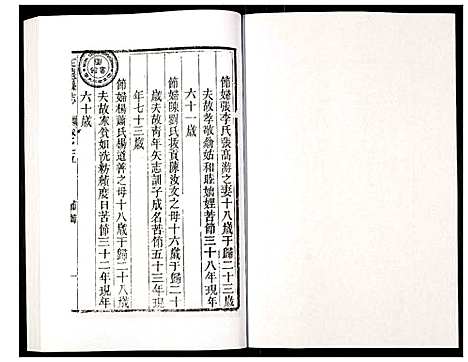 節婦張李氏張高游之妻十八歲于歸二十三歲
夫故孝敬翁姑和睦娣姒苦節三十八年現年
六十一歲
節婦陳劉氏拔貢陳汝文之母十六歲于歸二十
歲夫故靑年矢志訓子成名苦節五十三年現
年七十三歲
節婦楊蕭氏楊道善之母十八歲于歸二十八歲
夫故家貧如洗紡績度日苦節三十二年現年
六十歲